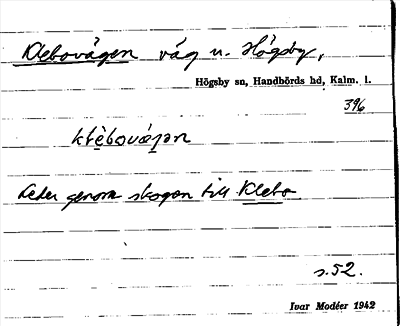 Klebovägen väg n. Högsby,
Högsby sn, Handbörds hd, Kalm. l.
396
klèbová̱jən
Leder genom skogen till Klebo
s. 52.
Ivar Modéer 1942